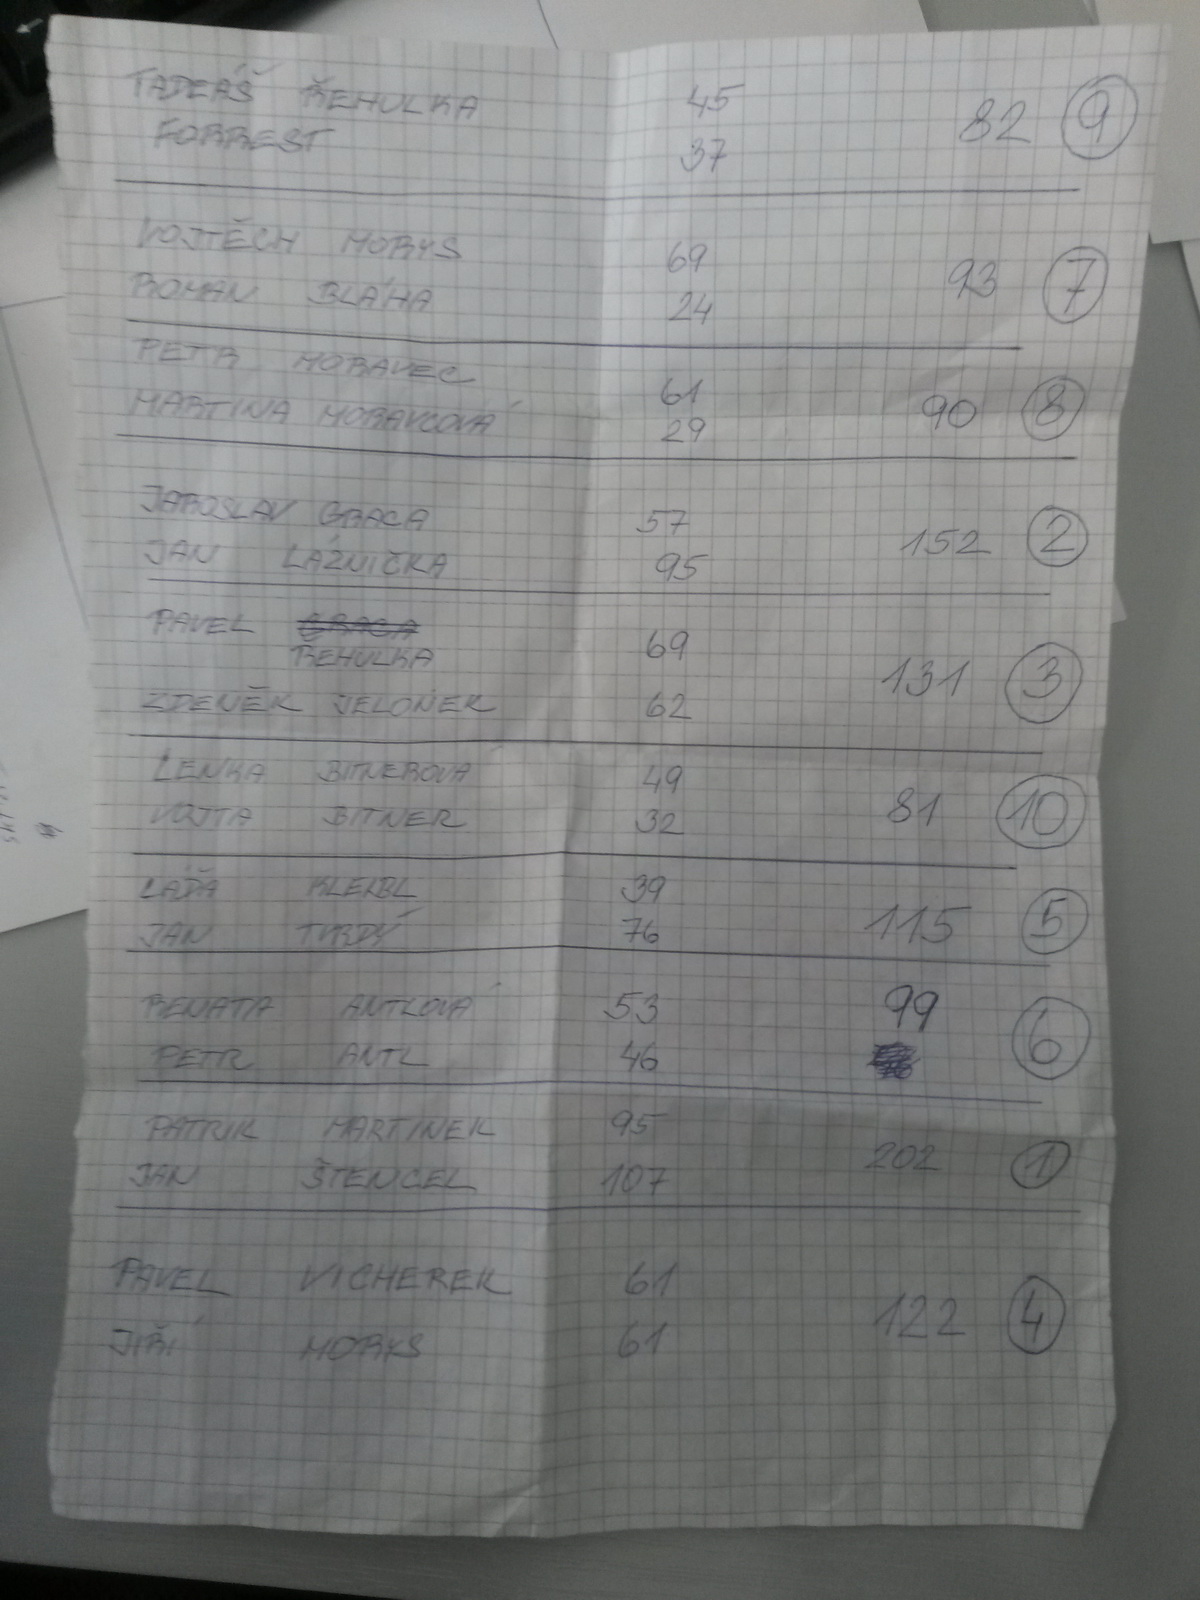 TADEÁŠ ŘEHULKA 45
82 9
FORREST 37
VOJTĚCH MORYS 69
93 7
ROMAN BLÁHA 24
PETR MORAVEC 61
90 8
MARTINA MORAVCOVÁ 29
JAROSLAV GRACA 57
152 2
JAN LÁZNIČKA 95
PAVEL GRACA
ŘEHULKA 69
131 3
ZDENĚK JELONEK 62
LENKA BITNEROVÁ 49
81 10
VOJTA BITNER 32
LÁĎA KLEIBL 39
115 5
JAN TVRDÝ 76
RENATA ANTLOVÁ 53 99
6
PETR ANTL 46
PATRIK MARTINEK 95
202 1
JAN ŠTENCEL 107
PAVEL VICHEREK 61
122 4
JIŘÍ MORYS 61